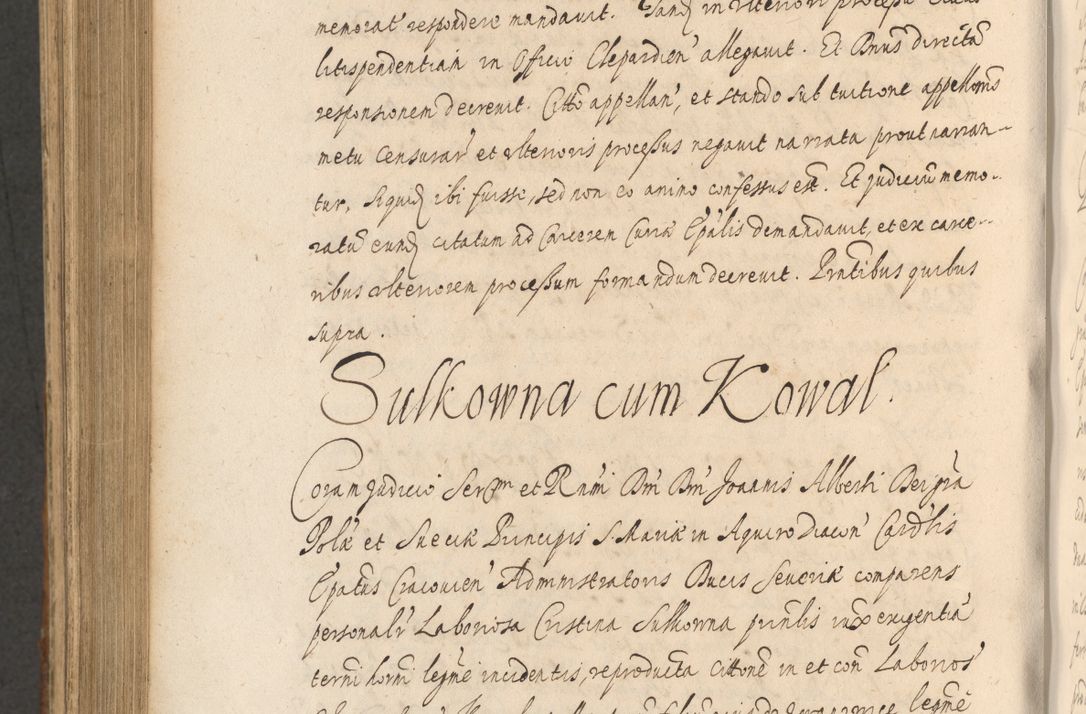 memorat' respondere mandavit. Tand in ulteriori processu
litispendentiam in Officio Clepardien' allegavit. Et Dnus directã
responsionem decrevit. Citto appellan', et stando sub tuitione appellonis
metu Censurar' et ulterioris processus negavit narrata prout narran-
tur, siquid ibi fuisse, sed non eo animo confessus est. Et judiciũ memo-
ratũ eund citatum ad Carcerem Curiæ Ep̃alis demandavit, et ex carce-
ribus ulteriorem processum formandum decrevit. Pñtibus quibus
supra.
Sulkowna cum Kowal.
Coram Judicio Ser̃m et R̃ndmi Dñi Dñi Joannis Alberti Dei grã
Polæ et Sueciæ Principis S. Mariæ in Aquiro Diacon' Cardlis
Ep̃atus Cracovien' Administratoris Ducis Severiæ comparens
personalr Laboriosa Cristina Sulkowna prinlis in exigentia
termi horni legme incidentis, reproducta cittone in et con Laborios'